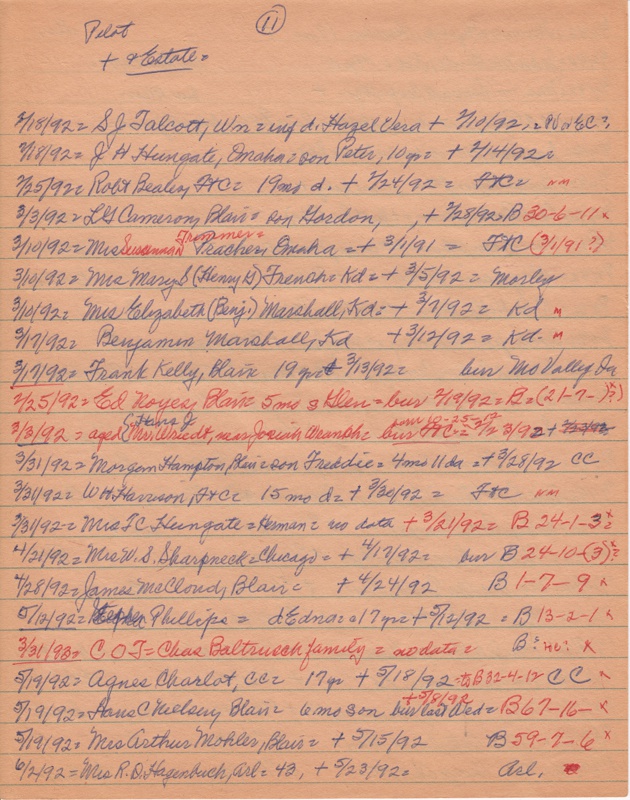 11
Pilot
+ & Estate =
2/18/92 = S J Talcott, Wn = inf d. Hazel Vera + 2/10/92, = W or EC?
2/18/92 = J H Hungate, Omaha = son Peter, 10 yr = + 2/14/92 =
2/25/92 = Robt Bealey, FtC = 19 mo d. + 2/24/92 = FtC = NM
3/3/92 = LG Cameron, Blair = son Gordon, , + 2/28/92 B 30-6-11 x
3/10/92 = Mrs Susannah Trimmer = Peacher, Omaha = + 3/1/91 = FtC (3/1/91?)
3/10/92 = Mrs Mary S (Henry H) French = Kd = + 3/5/92 = Morley
3/10/92 = Mrs Elizabeth (Benj.) Marshall, Kd = + 3/7/92 = Kd M
3/17/92 = Benjamin Marshall, Kd + 3/12/92 = Kd. M
3/17/92 = Frank Kelly, Blair 19 yr = + 3/13/92 = bur Mo Valley Ia
2/25/92 = Ed Noyes, Blair 5 mo s Glen = bur 2/18/92 = B = (21-7- )?
3/3/92 = aged (Hans J Mrs) Wriedt, near Josiah = bur born 10-25-17 3/92 +
3/31/92 = Morgan Hampton, Blair = son Freddie = 4 mo 11 da = + 3/28/92 CC
3/31/92 = W H Harrison, FtC = 15 mo d = + 3/30/92 = FtC NM
3/31/92 = Mrs F C Hungate = Herman = no data + 3/21/92 = B 24-1-3 x?
4/21/92 = Mrs W. S. Sharpneck = Chicago = + 4/17/92 = bur B 24-10-(3)? x
4/28/92 = James McCloud, Blair = + 4/24/92 B 1-7-9 x
5/12/92 = Phillips = d Edna = 17 yr + 5/12/92 = B 13-2-1 x
3/31/93 = C. O T = Chas Baltrusch family = no data = B? x
5/19/92 = Agnes Charlot, CC = 17 yr + 5/18/92 = to B 32-4-12 CC x
5/19/92 = Hans C Nielsen, Blair = 6 mo son bur last Wed = + 5/18/92 B 67-16- x
5/19/92 = Mrs Arthur Mohler, Blair = + 5/15/92 B 59-7-6 x
6/2/92 = Mrs R. D. Hagenbuch, Arl = 43, + 5/23/92 = Arl.